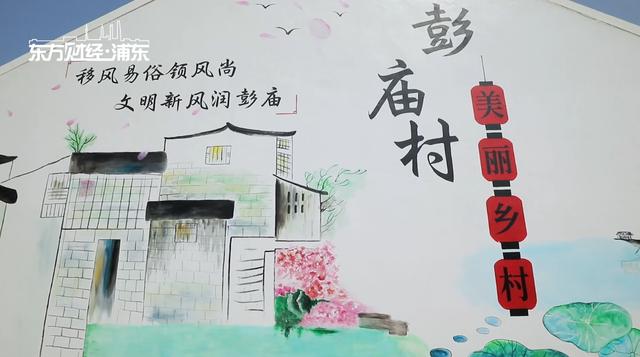 东方财经·浦东
移风易俗领风尚
文明新风润彭庙
彭庙村
美丽乡村